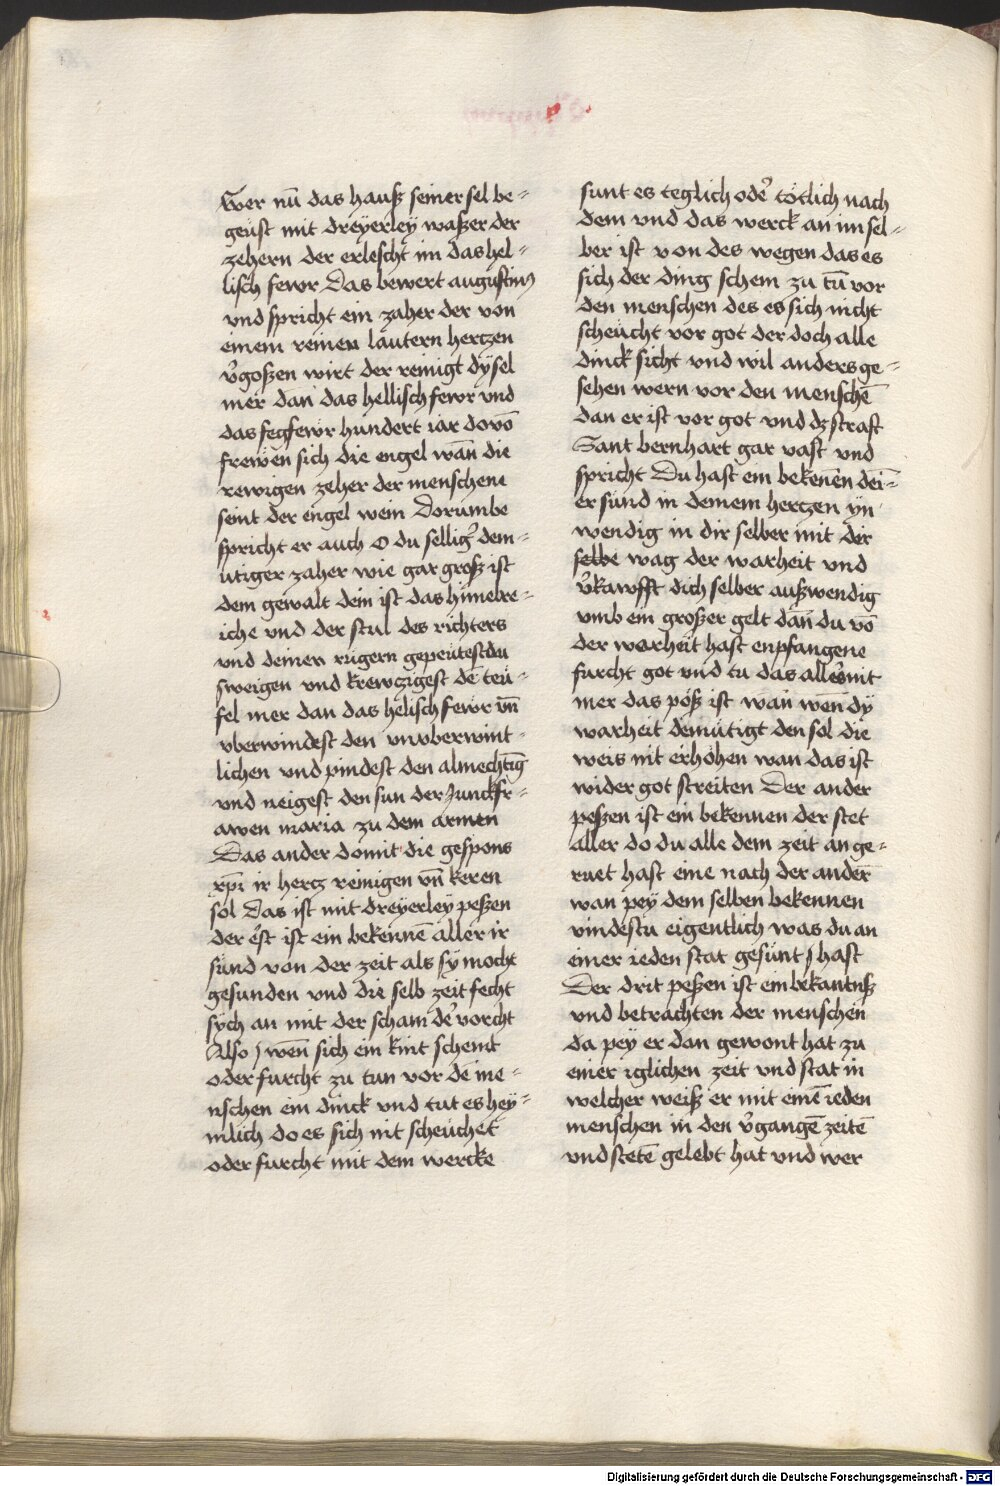 Wer nu᷈ das hauß seiner sel be⸗
geüst mit dreÿerleÿ waßer der
zehern der erlescht im das hel⸗
lisch fewr Das bewert augustinꝰ
vnd spricht ein zaher der von
einem reinen lautern hertzen
v̉goßen wirt der reinigt dÿ sel
mer dan das hellisch fewr vnd
das fegfewr hundert iar dovō
frewen sich die engel wan̄ die
rewigen zeher der menschenn
seint der engel wein Dorumbe
spricht er auch O du sellig̉ dem⸗
ütiger zaher wie gar groß ist
dem gewalt dein ist das himelre⸗
iche vnd der stul des richters
vnd deinen rügern gepeütest du
sweigen vnd krewczigest dē teü⸗
fel mer dan das helisch fewr vn̄
vberwindest den vnvberwint⸗
lichen vnd pindest den almechtīg
vnd neigest den sun der Junckfr⸗
awen maria zu dem armen
Das ander domit die gespons
xp̄i ir hertz reinigen vn̄ keren
sol Das ist mit dreyerley peßen
der e̓st ist ein bekennē aller ir
sünd von der zeit als sÿ mocht
gesunden vnd die selb zeit fecht
sÿch an mit der scham de̓ vorcht
Also / wen̄ sich ein kint schemt
oder furcht zu tun vor dē me⸗
nschen ein dinck vnd tut es hey⸗
mlich do es sich nit scheuchet
oder furcht mit dem wercke
sunt es teglich ode̓ tötlich nach
dem vnd das werck an im sel⸗
ber ist von des wegen das es
sich der ding schem zu tu᷈ vor
den menschen des es sich nicht
scheücht vor got der doch alle
dinck sicht vnd wil anders ge⸗
sehen wern vor den menschē
dan er ist vor got vnd dz straft
Sant bernhart gar vast vnd
spricht Du hast ein bekenen dei⸗
er sünd in deinem hertzen yn
wendig in dir selber mit der
selbe wag der warheit vnd
v̉kawfft dich selber außwendig
vmb ein großer gelt dan̄ du vō
der warheit hast enpfangene
furcht got vnd tu das alles nit
mer das pöß ist wan wen̄ dÿ
warheit demütigt den sol die
weis nit erhöhen wan das ist
wider got streiten Der ander
peßen ist ein bekennen der stet
aller do du alle dein zeit an ge⸗
ruet hast eine nach der ander
wan pey dem selben bekennen
vindestu eigentlich was du an
einer ieden stat gesünt / hast
Der drit peßen ist ein bekantnß
vnd betrachten der menschen
da pey er dan gewont hat zu
einer iglichen zeit vnd stat in
welcher weiß er mit einē ieden
menschen in den v̉gangē zeitē
vnd stetē gelebt hat vnd wer
Digitalisierung gefördert durch die Deutsche Forschungsgemeinschaft - DFG